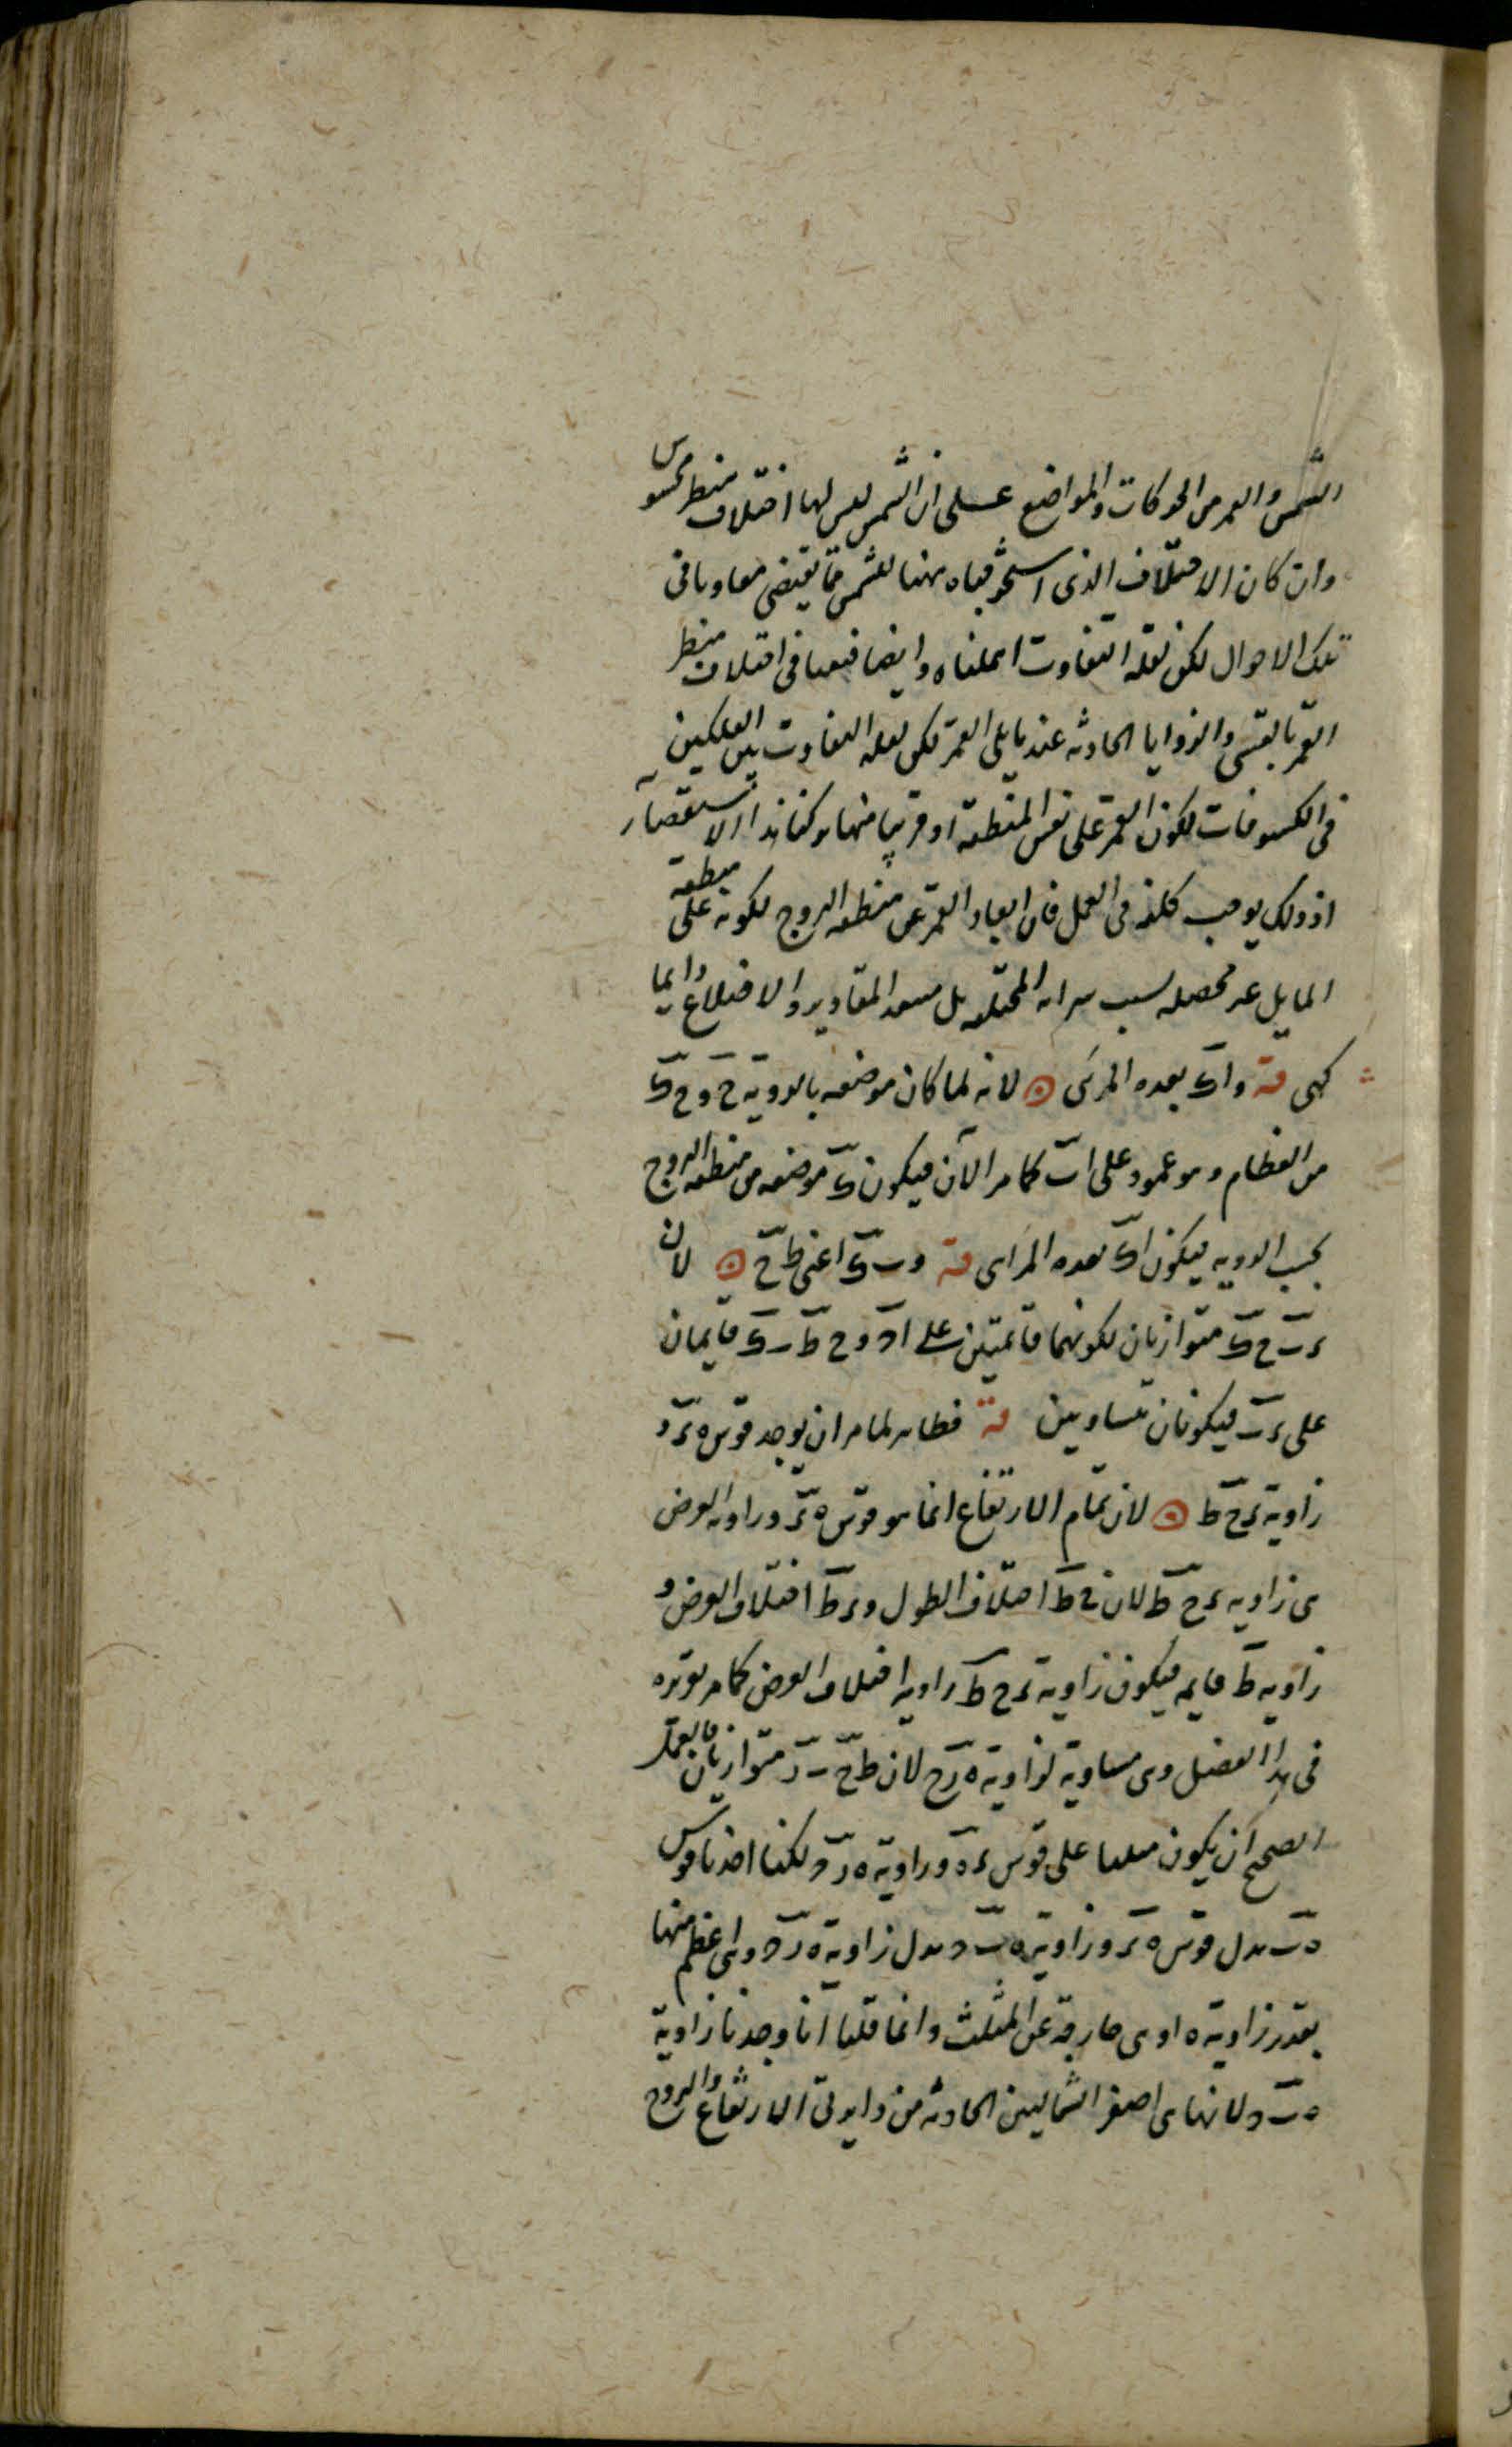 الشمس والقمر من الحركات والمواضع على ان الشمس ليس لها اختلاف منظر محسوس
وان كان الاختلاف الذى استخرجناه منها للشمس قد يقتضى تفاوتا فى
تلك الاحوال لكن لقلة التفاوت اهملناه وايضا فعلنا فى اختلاف منظر
القمر بالقسى والزوايا الحادثه عند مايلى القمر لكن لقله التفاوت بين الفلكين
فى الكسوفات لكون القمر على نفس المنطقة او قريبا منها تركنا هذا الاستقصآ
اذ ذلك يوجب كلفه فى العمل فان ابعاد القمر عن منطقه البروج لكونه على منطقة
المايل غير محصله بسبب المختلفه بل المقادير والاختلاع وايما
كهى قة واك بعده المرئى لانه لما كان موضعه بالرويه ح و ح ك
من العظام وهو عمود على ا ب كما مر الآن فيكون ك موضعه من منطقه البروج
بحسب الرويه فيكون اك بعده المراى قة و ب ك اعنى ط ح لان
ى ب ح ك متوازيان لكونهما قائمتين على ا د و ح ط ب ك قايمان
على ى ب فيكونان متساويين قة فظاهر لما مر ان يوجد قوس ه ى و
زاوية ى ح ط لان تمام الارتفاع انما هو قوس ه ى وزاويه العرض
هى زاويه ى ح ط لان ح ط اختلاف الطول و ى ط اختلاف العرض و
زاويه ط قايمه فيكون زاوية ى ح ط زاويه اختلاف العرض كما مر
فى هذا الفصل وهى مساوية لزاوية ه ر ح لان ط ح ب د متوازيان فالعمل
الصحيح ان يكون عملنا على قوس ى ه وزاوية ه ر د لكنا اخذنا قوس
ه ب بدل قوس ه ى وزاوية ه ب د بدل زاوية ه ر د وهى اعظم منها
بقدر زاوية ه ا وهى خارجة عن المثلث وانما قلنا انا وجدنا زاوية
ه ب د لانها هى اصغر الشماليين الحادثه من دايرتى الارتفاع والبروج